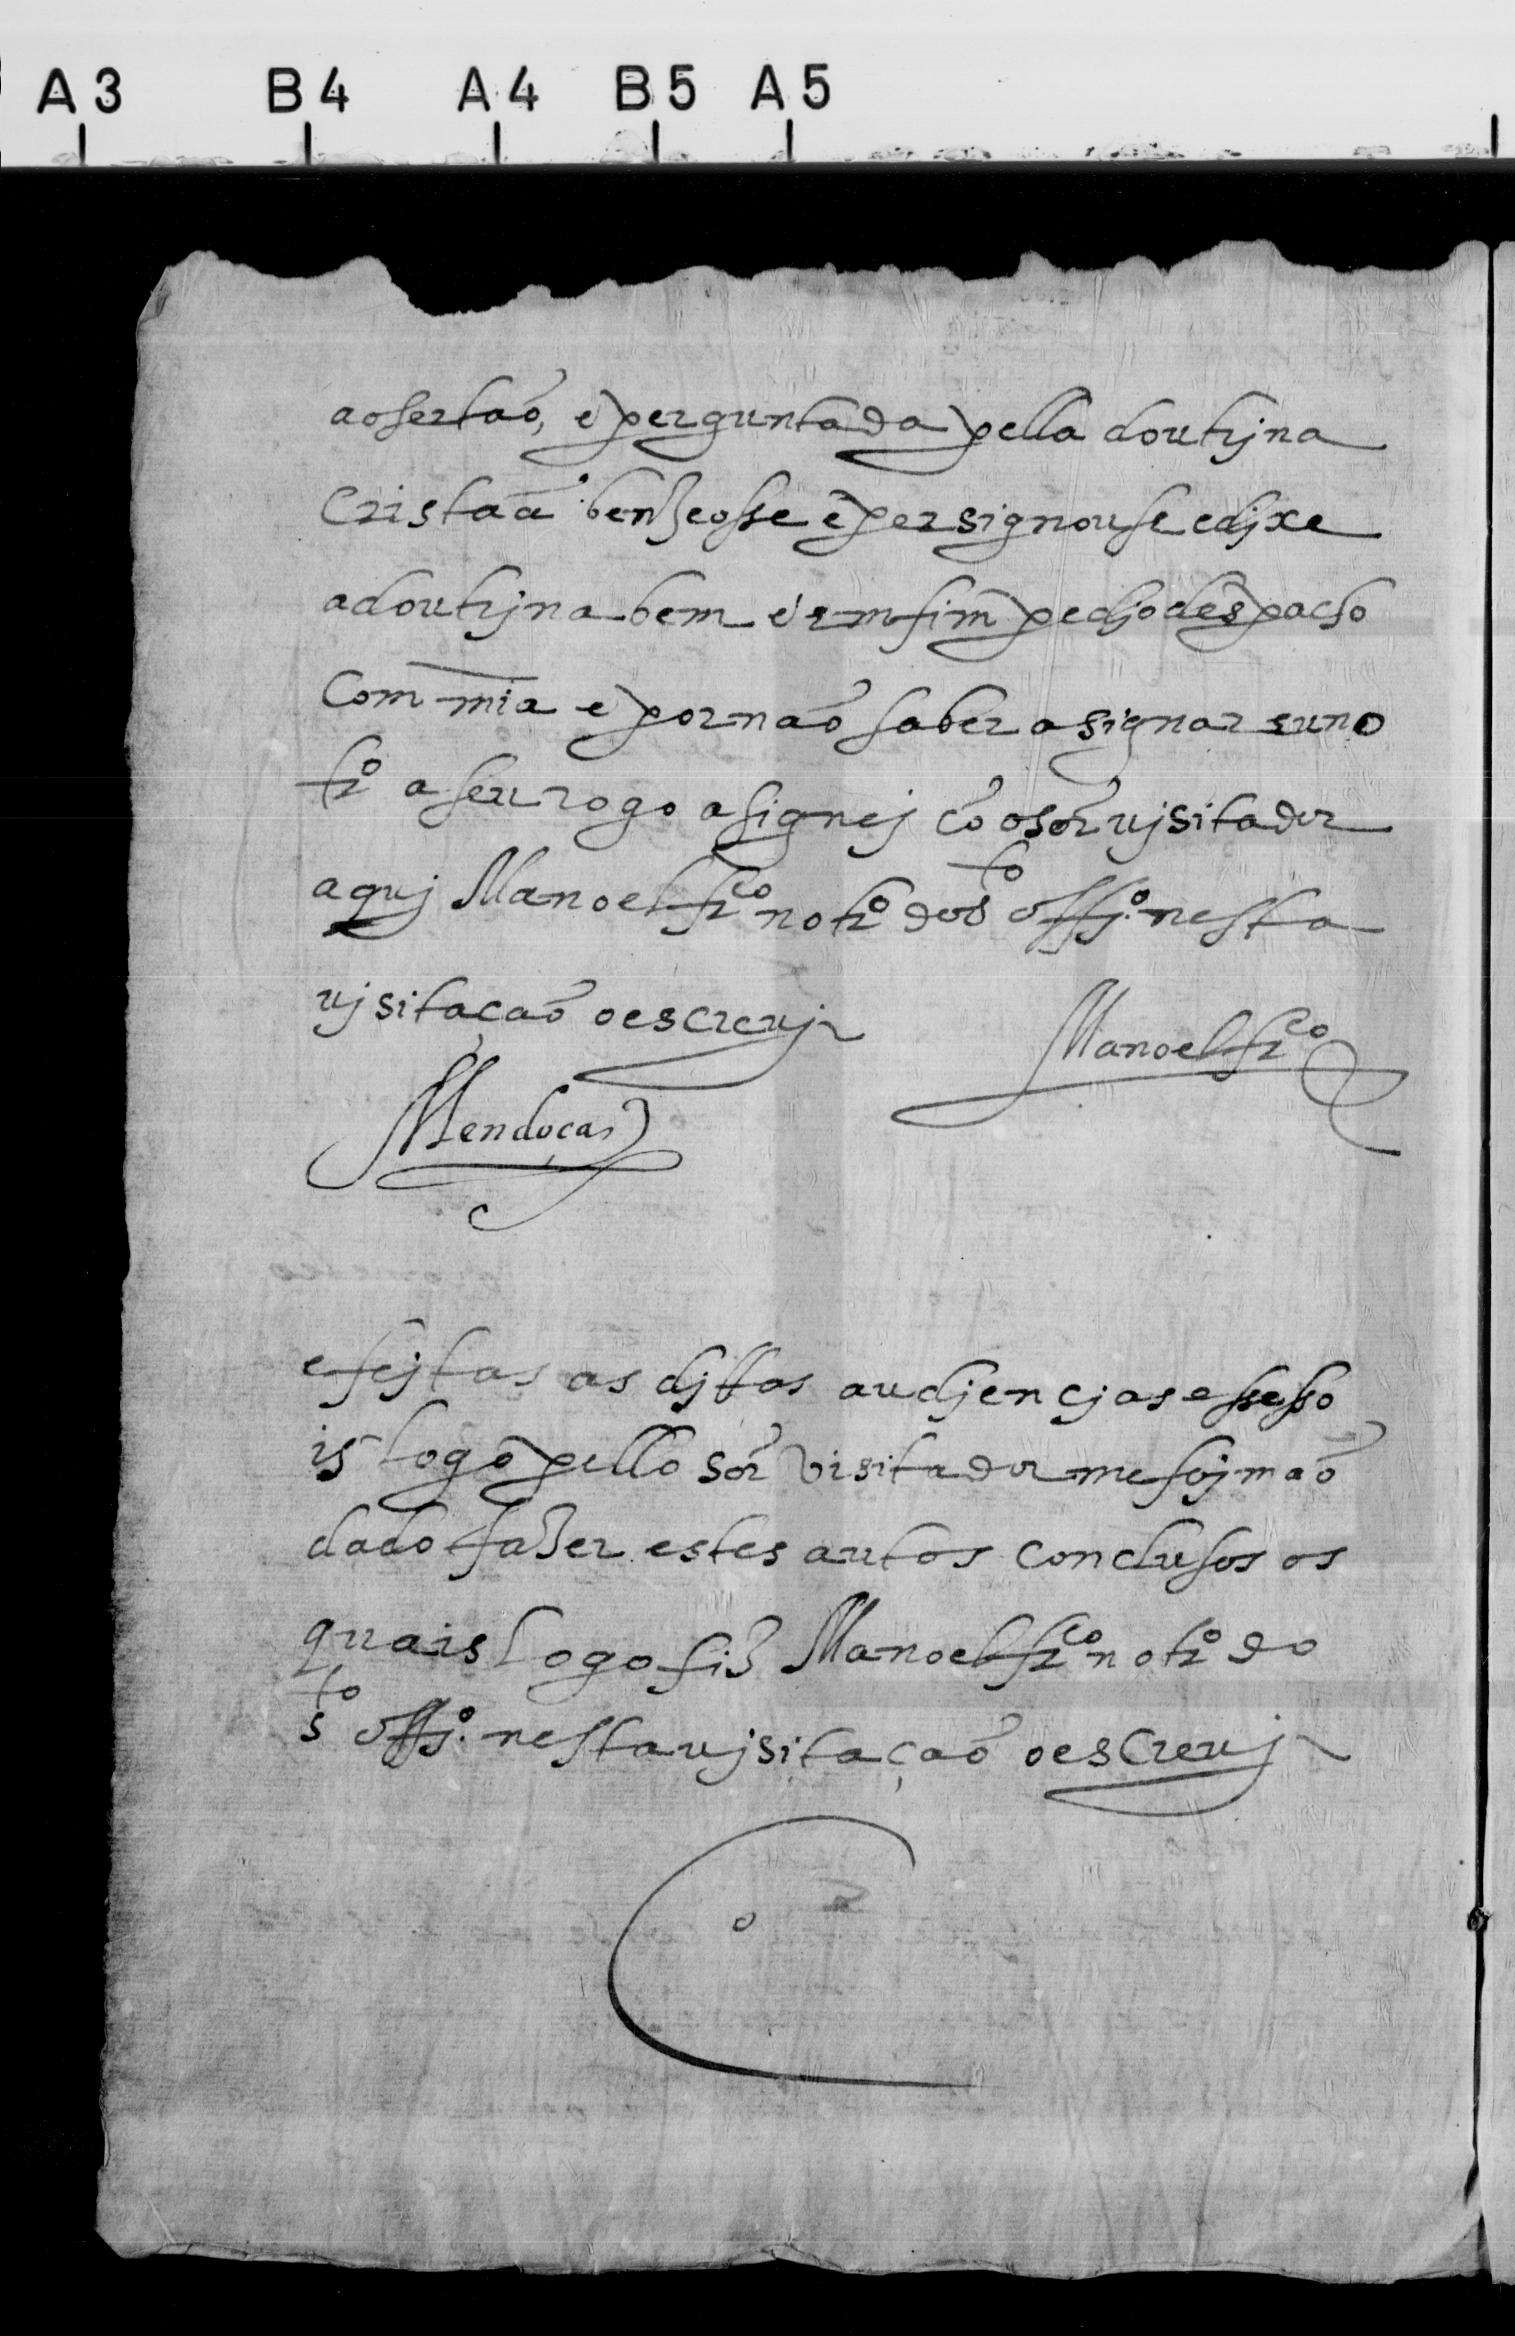 A3 B4 A4 B5 A5
ao sertaõ, e perguntada pella doutrjna
Cristaã benzeosse e persignouse e djxe
a doutrjna bem e em fim pedjo despacho
Com mĩa e por naõ saber asignar eu no
tro a seu rogo asignej cõ o sõr vjsitador
aquj Manoel frco notro do sto offjo. nesta
vjsitaçaõ o escrevj
Manoel frco
Mendoça
e fejtas as djttas audjencjas e sesso
is logo pello sõr visitador me foj mão
dado fazer estes autos conclusos os
quais logo fiz Manoel frco notro do
sto offjo. nesta vjsitaçaõ o escrevj